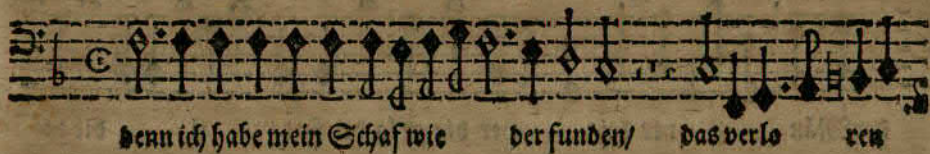 denn ich habe mein Schaf wie der funden/ das verlo ren